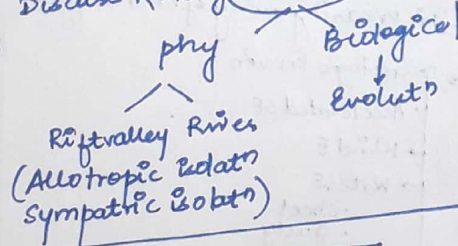 Discuss
phy Biological
Evolutn
Riftvalley Rives
(Allotropic isolatn
Sympatric isolatn)